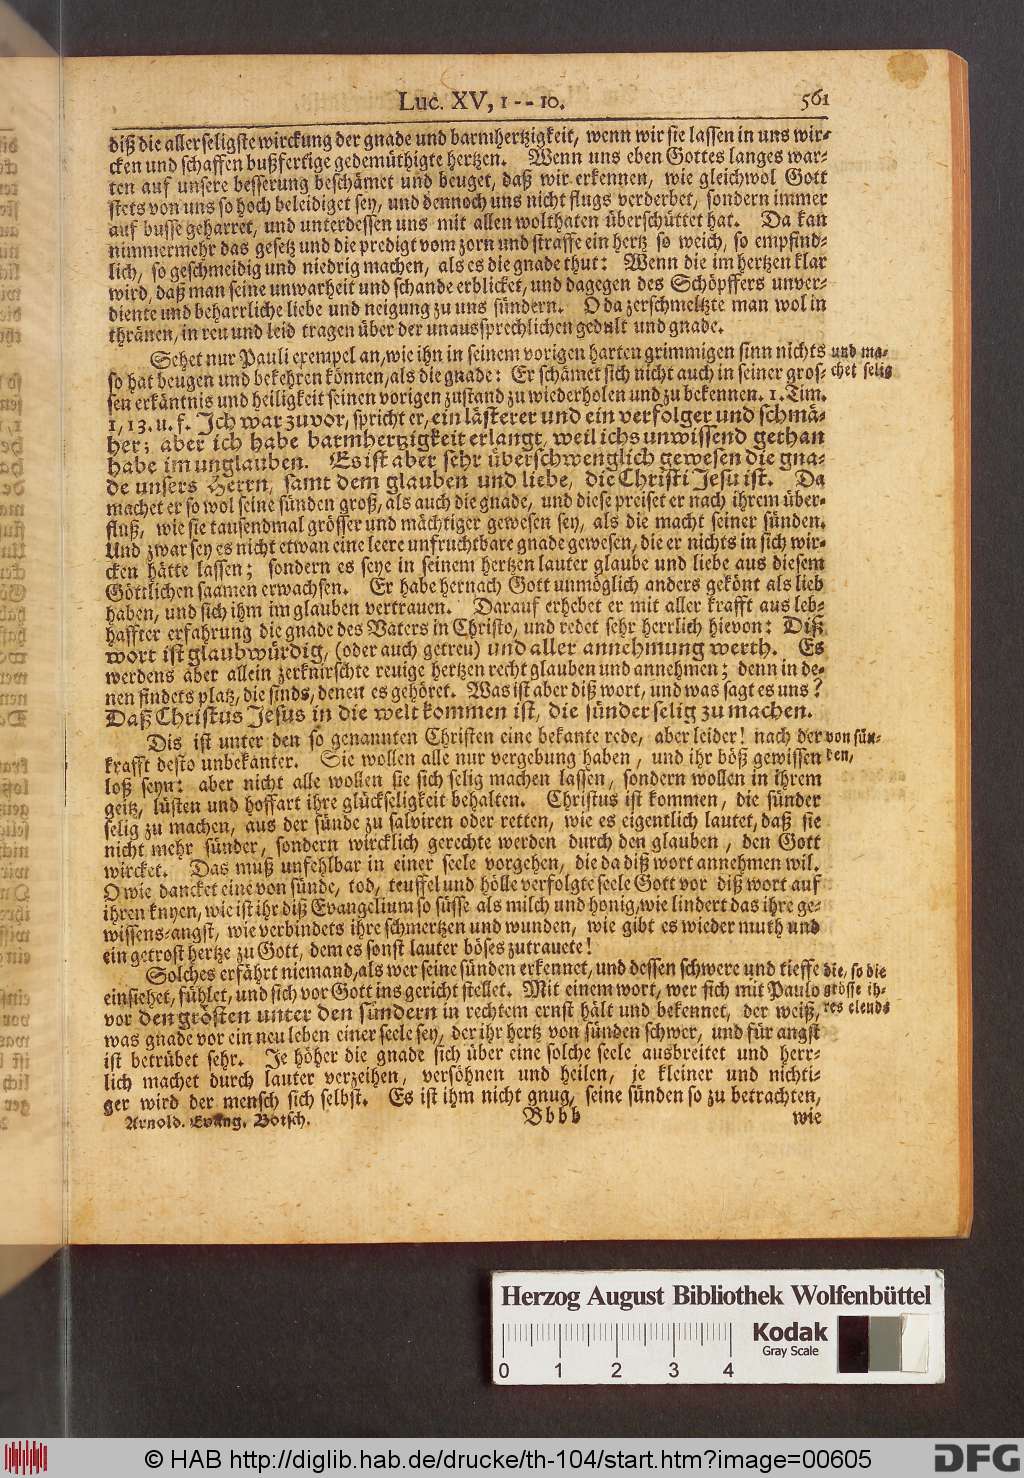 Luc. XV, 1 -- 10. 561
diß die allerseligste wirckung der gnade und barmhertzigkeit, wenn wir sie lassen in uns wir-
cken und schaffen bußfertige gedemüthigte hertzen. Wenn uns eben Gottes langes war-
ten auf unsere besserung beschämet und beuget, daß wir erkennen, wie gleichwol Gott
stets von uns so hoch beleidiget sey, und dennoch uns nicht flugs verderbet, sondern immer
auf busse geharret, und unterdessen uns mit allen wolthaten überschüttet hat. Da kan
nimmermehr das gesetz und die predigt vom zorn und straffe ein hertz so weich, so empfind-
lich, so geschmeidig und niedrig machen, als es die gnade thut: Wenn die im hertzen klar
wird, daß man seine unwarheit und schande erblicket, und dagegen des Schöpffers unver-
diente und beharrliche liebe und neigung zu uns sündern. O da zerschmeltzte man wol in
thränen, in reu und leid tragen über der unaussprechlichen gedult und gnade.
Sehet nur Pauli exempel an, wie ihn in seinem vorigen harten grimmigen sinn nichts und ma-
so hat beugen und bekehren können, als die gnade: Er schämet sich nicht auch in seiner gros- chet selig
sen erkäntnis und heiligkeit seinen vorigen zustand zu wiederholen und zu bekennen. 1. Tim.
1, 13. u. f. Ich war zuvor, spricht er, ein lästerer und ein verfolger und schmä-
her; aber ich habe barmhertzigkeit erlangt, weil ichs unwissend gethan
habe im unglauben. Es ist aber sehr überschwenglich gewesen die gna-
de unsers Herrn, samt dem glauben und liebe, die Christi Jesu ist. Da
machet er so wol seine sünden groß, als auch die gnade, und diese preiset er nach ihrem über-
fluß, wie sie tausendmal grösser und mächtiger gewesen sey, als die macht seiner sünden.
Und zwar sey es nicht etwan eine leere unfruchtbare gnade gewesen, die er nichts in sich wir-
cken hätte lassen; sondern es seye in seinem hertzen lauter glaube und liebe aus diesem
Göttlichen saamen erwachsen. Er habe hernach Gott unmöglich anders gekönt als lieb
haben, und sich ihm im glauben vertrauen. Darauf erhebet er mit aller krafft aus leb-
haffter erfahrung die gnade des Vaters in Christo, und redet sehr herrlich hievon: Diß
wort ist glaubwürdig, (oder auch getreu) und aller annehmung werth. Es
werdens aber allein zerknirschte reuige hertzen recht glauben und annehmen; denn in de-
nen findets platz, die sinds, denen es gehöret. Was ist aber diß wort, und was sagt es uns?
Daß Christus Jesus in die welt kommen ist, die sünder selig zu machen.
Dis ist unter den so genannten Christen eine bekante rede, aber leider! nach der von sün-
krafft desto unbekänter. Sie wollen alle nur vergebung haben, und ihr böß gewissen den,
loß seyn: aber nicht alle wollen sie sich selig machen lassen, sondern wollen in ihrem
geitz, lüsten und hoffart ihre glückseligkeit behalten. Christus ist kommen, die sünder
selig zu machen, aus der sünde zu salviren oder retten, wie es eigentlich lautet, daß sie
nicht mehr sünder, sondern wircklich gerechte werden durch den glauben, den Gott
wircket. Das muß unfehlbar in einer seele vorgehen, die da diß wort annehmen wil.
O wie dancket eine von sünde, tod, teuffel und hölle verfolgte seele Gott vor diß wort auf
ihren knyen, wie ist ihr diß Evangelium so süsse als milch und honig, wie lindert das ihre ge-
wissens-angst, wie verbindets ihre schmertzen und wunden, wie gibt es wieder muth und
ein getrost hertze zu Gott, dem es sonst lauter böses zutrauete!
Solches erfährt niemand, als wer seine sünden erkennet, und dessen schwere und tieffe die, so die
einsiehet, fühlet, und sich vor Gott ins gericht stellet. Mit einem wort, wer sich mit Paulo grösse ih-
vor den grösten unter den sündern in rechtem ernst hält und bekennet, der weiß, res elends
was gnade vor ein neu leben einer seele sey, der ihr hertz von sünden schwer, und für angst
ist betrübet sehr. Je höher die gnade sich über eine solche seele ausbreitet und herr-
lich machet durch lauter verzeihen, versöhnen und heilen, je kleiner und nichti-
ger wird der mensch sich selbst. Es ist ihm nicht gnug, seine sünden so zu betrachten,
Arnold. Evang. Botsch. Bbbb wie
Herzog August Bibliothek Wolfenbüttel
Kodak
Gray Scale
0 1 2 3 4
© HAB http://diglib.hab.de/drucke/th-104/start.htm?image=00605 DFG